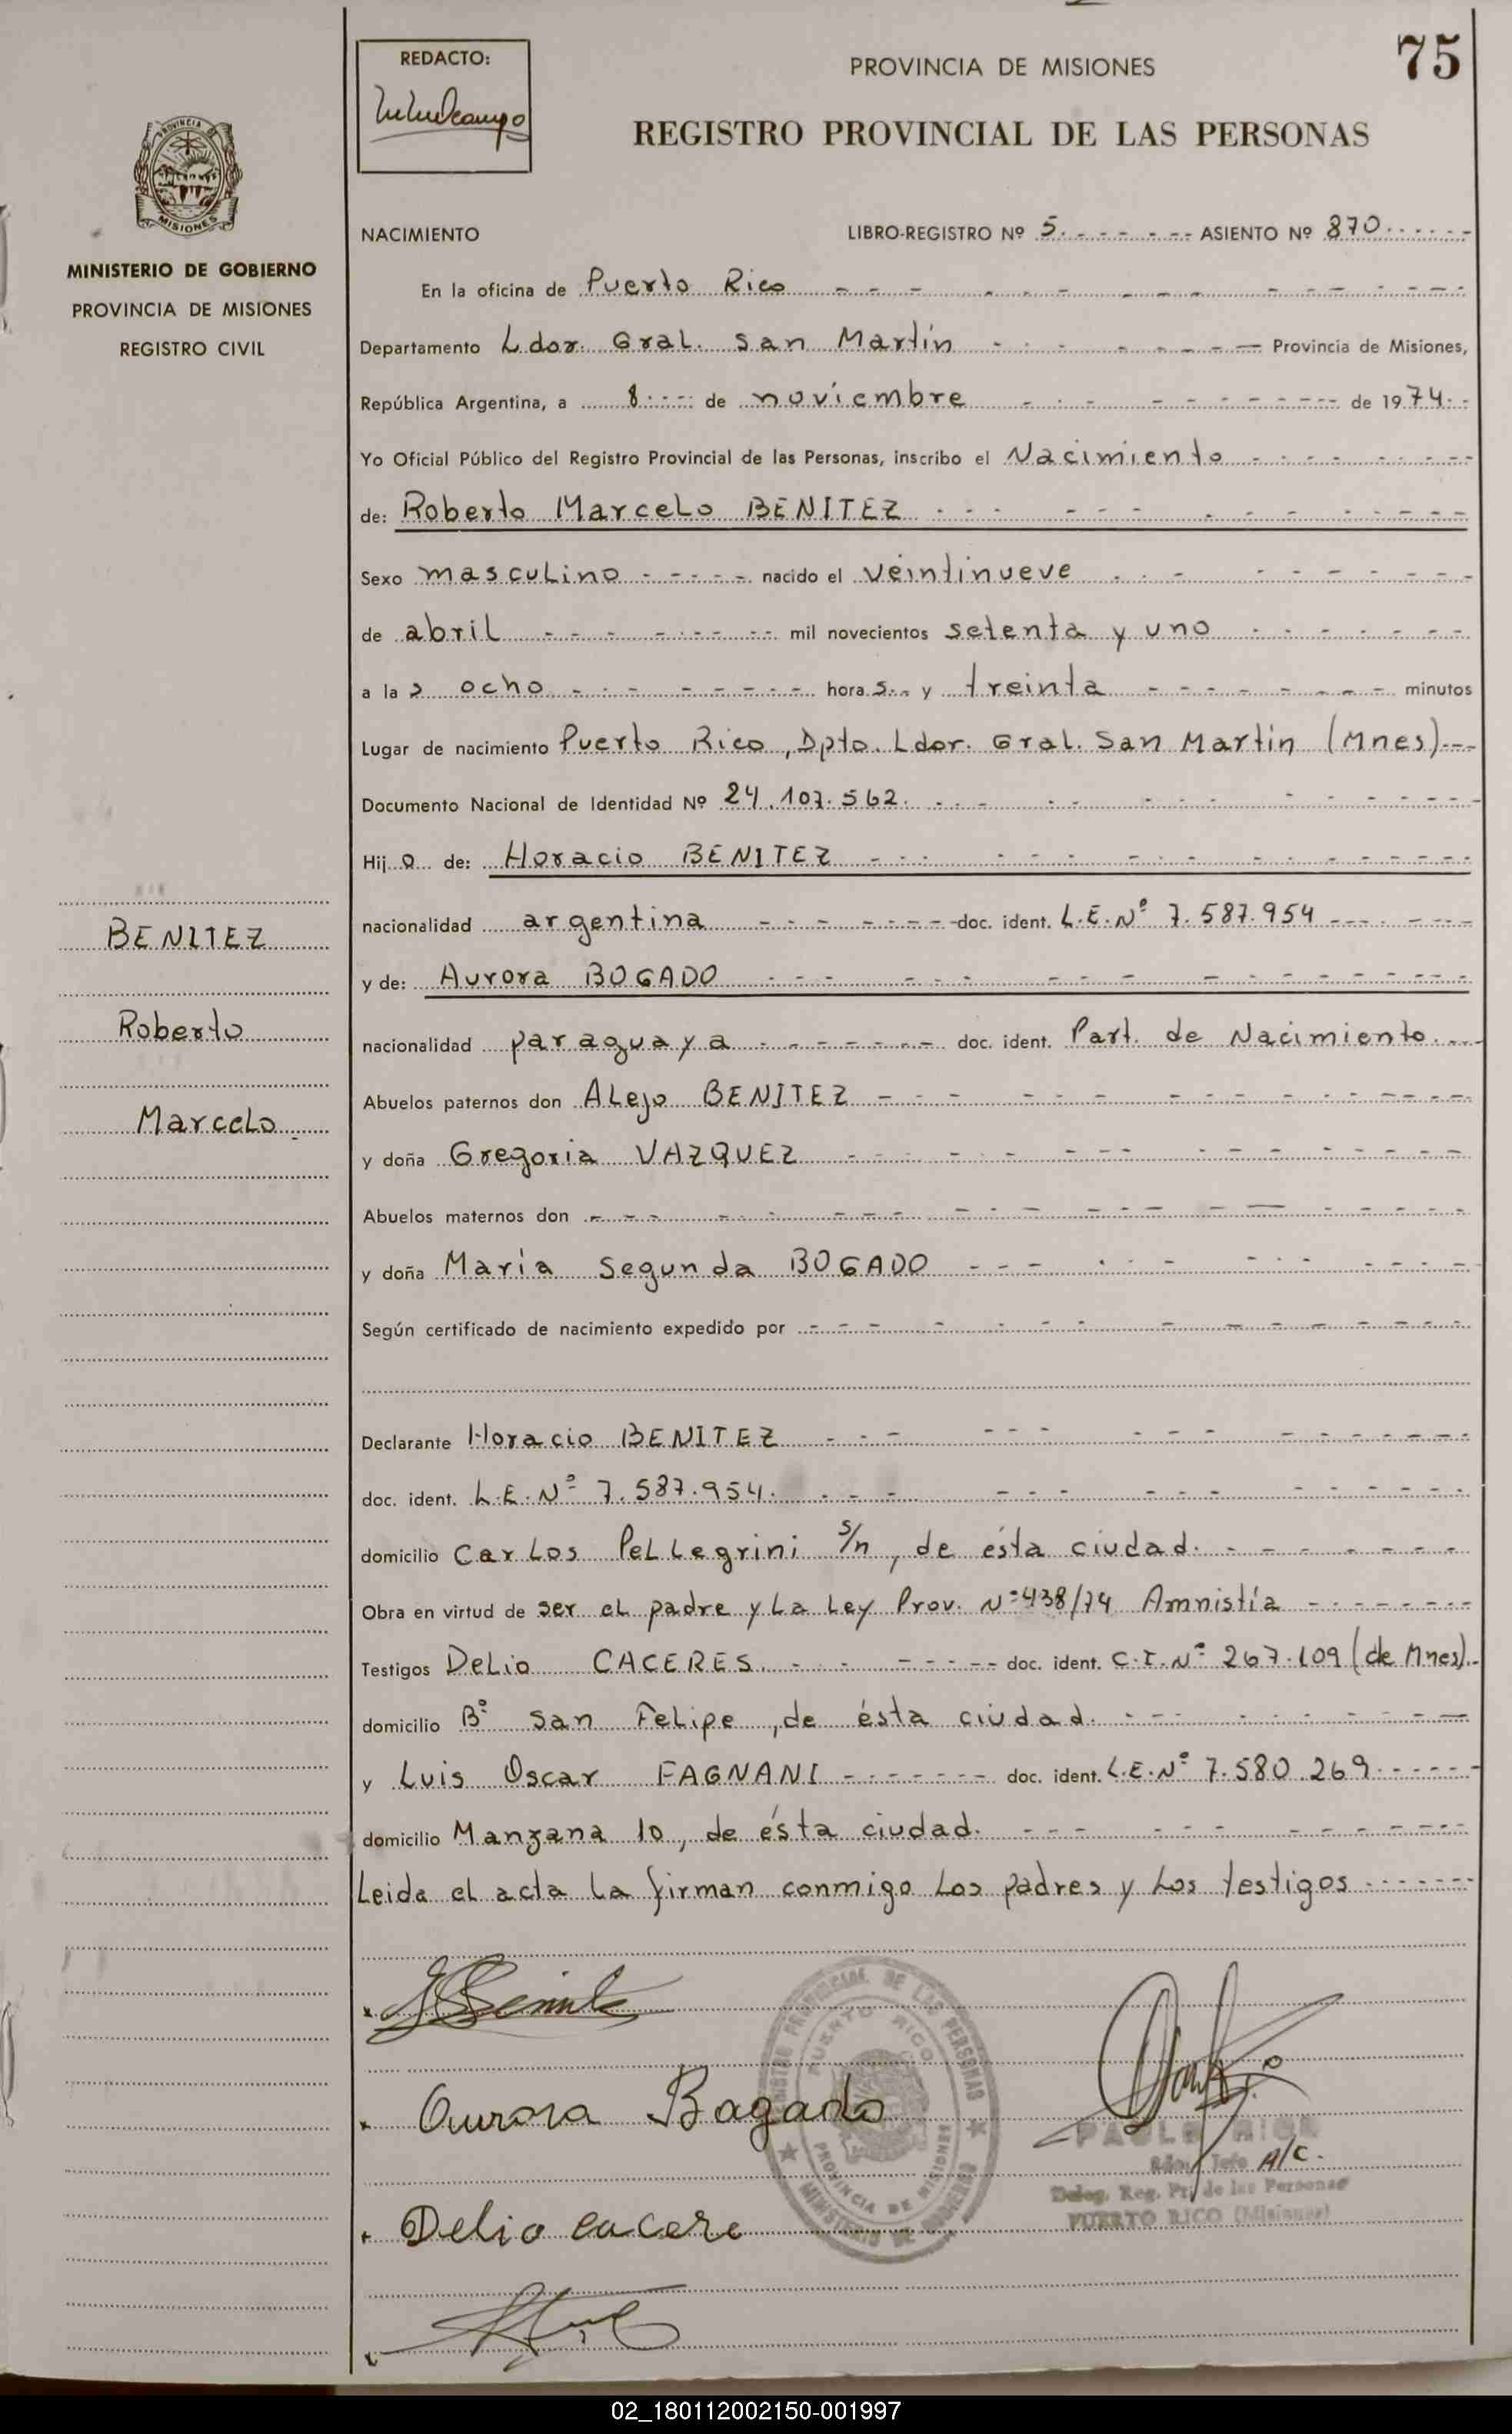 75
REDACTO:
PROVINCIA DE MISIONES
REGISTRO PROVINCIAL DE LAS PERSONAS
PROVINCIA DE
MISIONES
MINISTERIO DE GOBIERNO
PROVINCIA DE MISIONES
REGISTRO CIVIL
NACIMIENTO LIBRO-REGISTRO Nº 5 ASIENTO Nº 870
En la oficina de Puerto Rico
Departamento Ldor. Gral. San Martín Provincia de Misiones,
República Argentina, a 8 de noviembre de 1974
Yo Oficial Público del Registro Provincial de las Personas, inscribo el Nacimiento
de: Roberto Marcelo BENITEZ
Sexo masculino nacido el veintinueve
de abril mil novecientos setenta y uno
a las ocho horas y treinta minutos
Lugar de nacimiento Puerto Rico, Dpto. Ldor. Gral. San Martín (Mnes)
Documento Nacional de Identidad Nº 24.107.562.
Hijo de: Horacio BENITEZ
nacionalidad argentina doc. ident. L.E.Nº 7.587.954
y de: Aurora BOGADO
nacionalidad paraguaya doc. ident. Part. de Nacimiento
Abuelos paternos don Alejo BENITEZ
y doña Gregoria VAZQUEZ
Abuelos maternos don
y doña María Segunda BOGADO
Según certificado de nacimiento expedido por
Declarante Horacio BENITEZ
doc. ident. L.E.Nº 7.587.954.
domicilio Carlos Pellegrini s/n, de ésta ciudad.
Obra en virtud de ser el padre y La Ley Prov. Nº 438/74 Amnistía
Testigos Delio CACERES. doc. ident. C.I.Nº 267.109 (de Mnes).
domicilio Bº San Felipe, de ésta ciudad.
y Luis Oscar FAGNANI doc. ident. L.E.Nº 7.580.269
domicilio Manzana 10, de ésta ciudad.
Leida el acta la firman conmigo los padres y los testigos
BENITEZ
Roberto
Marcelo
Aurora Bagado
Delio cacere
REGISTRO PROVINCIAL DE LAS PERSONAS
PUERTO RICO
PROVINCIA DE MISIONES
MINISTERIO DE GOBIERNO
A/C.
Deleg. Reg. Prv de las Personas
PUERTO RICO (Misiones)
02_180112002150-001997